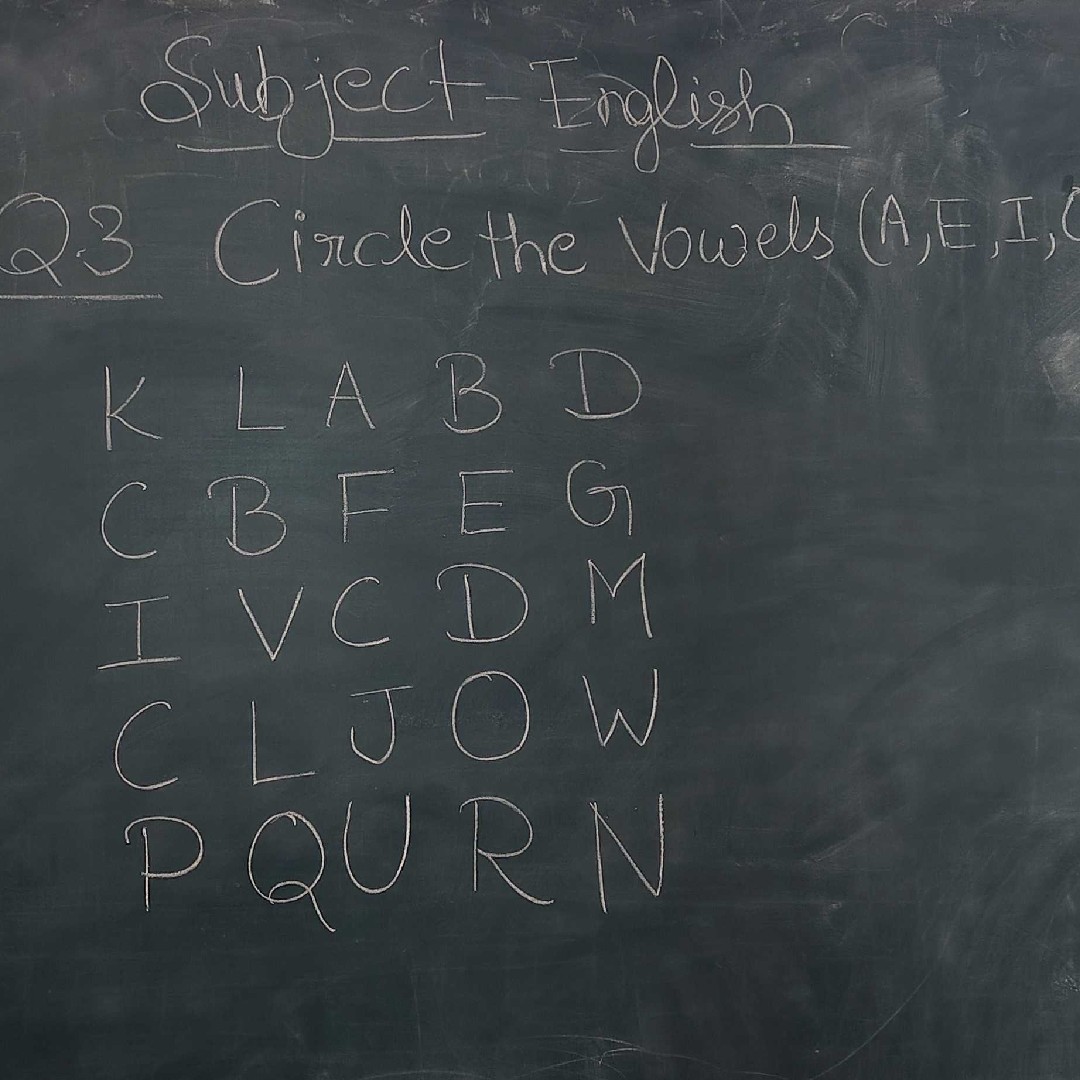 Subject - English
Q.3 Circle the Vowels (A,E,I,
K L A B D
C B F E G
I V C D M
C L J O W
P Q U R N